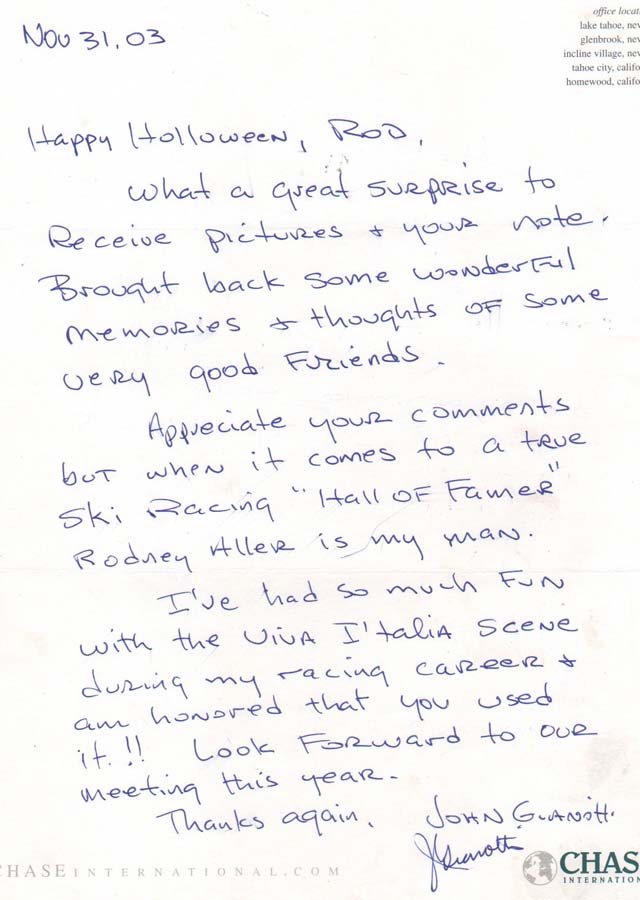 office locat
lake tahoe, nev
glenbrook, nev
incline village, nev
tahoe city, califo
homewood, califo
Nov 31, 03
Happy Holloween, Rod,
What a great surprise to
Receive pictures + your note.
Brought back some wonderful
memories + thoughts of some
very good Friends.
Appreciate your comments
but when it comes to a true
Ski Racing "Hall of Famer"
Rodney Aller is my man.
I've had so much Fun
with the Viva I'talia scene
during my racing career +
am honored that you used
it.!! Look Forward to our
meeting this year.
Thanks again. John Gianotti
JGianotti
CHASEINTERNATIONAL.COM
CHAS
INTERNATION